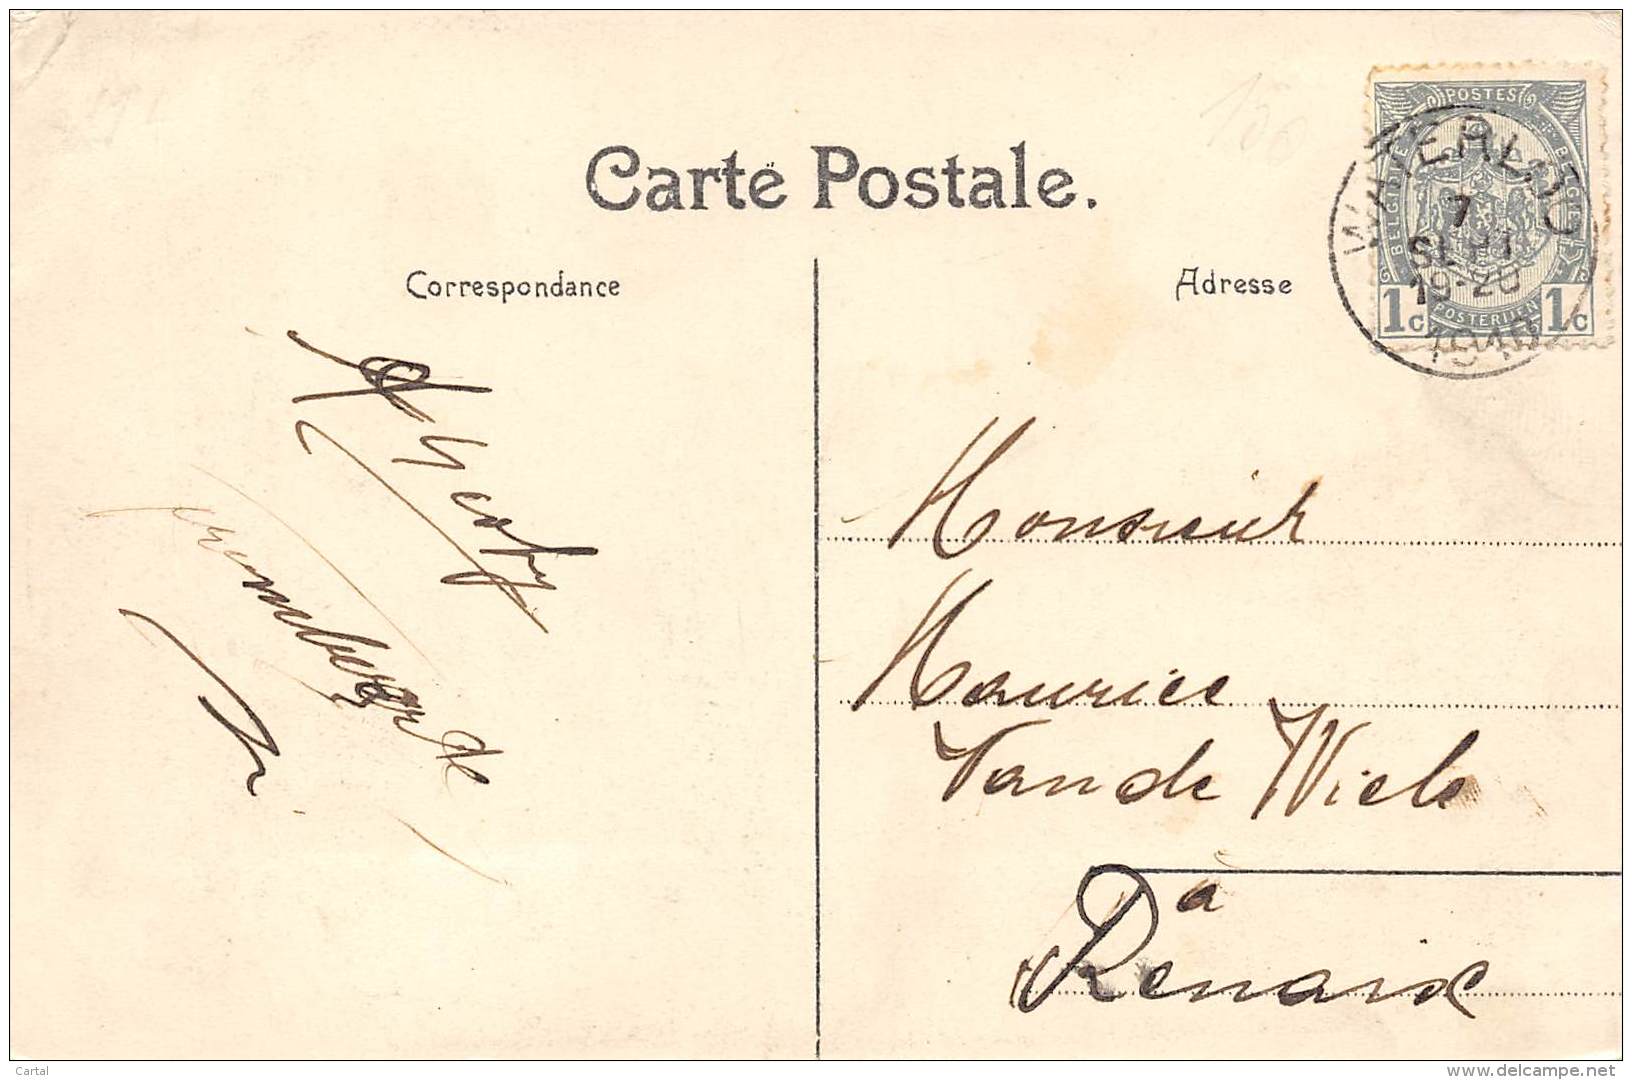 Carte Postale.
Correspondance
Adresse
POSTES
BELGIQUE
BELGIE
1c
POSTERIJEN
1c
WATERLOO
7
SEPT
19-20
1910
Monsieur
Maurice
Van de Wiele
à
Renaix
Cartal
delcampe.net